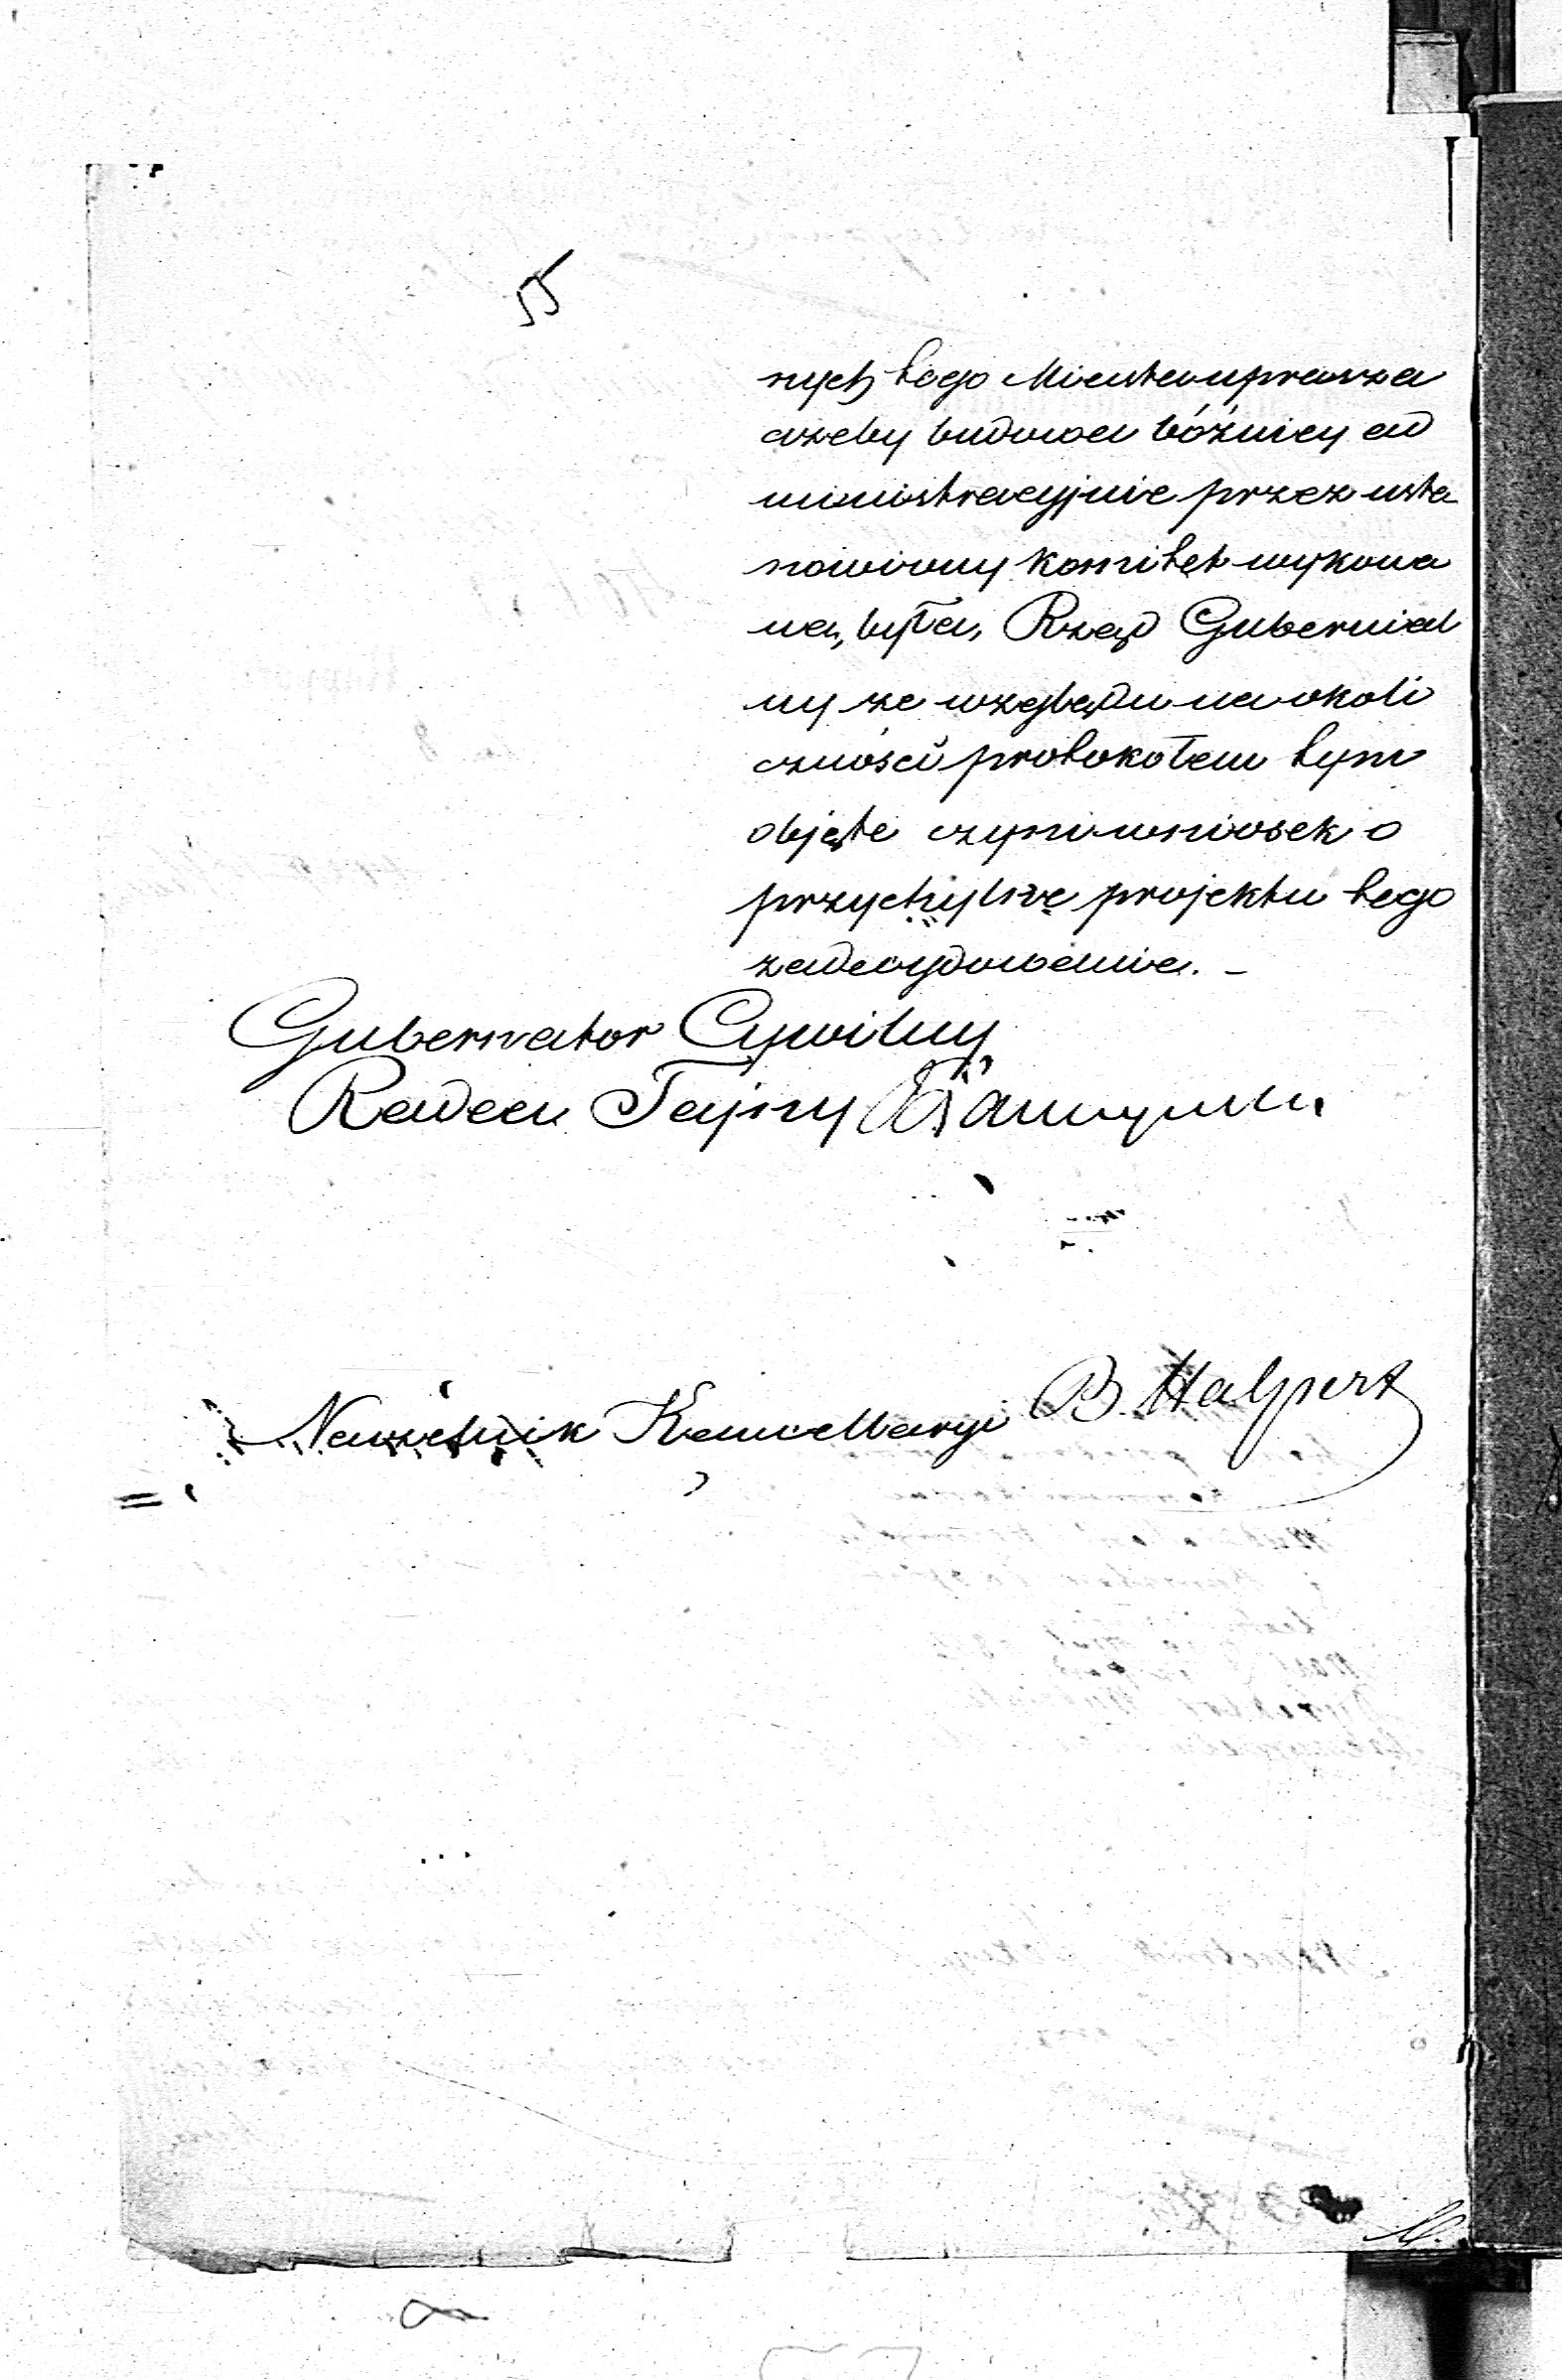 55
nych tego Miasta uprasza
ażeby budowa bóżnicy ad
ministracyjnie przez usta
nowiony komitet wykona
na, była, Rząd Gubernial
ny ze względu na okoli
czności protokółem tym
objęte czyni wniosek o
przychylne projektu tego
zadecydowanie. –
Gubernator Cywilny
Radca Tajny
Naczelnik Kancellaryi B. Halpert